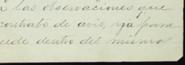 a las observaciones que
contrato de avio, ya para
cede dentro del mismo